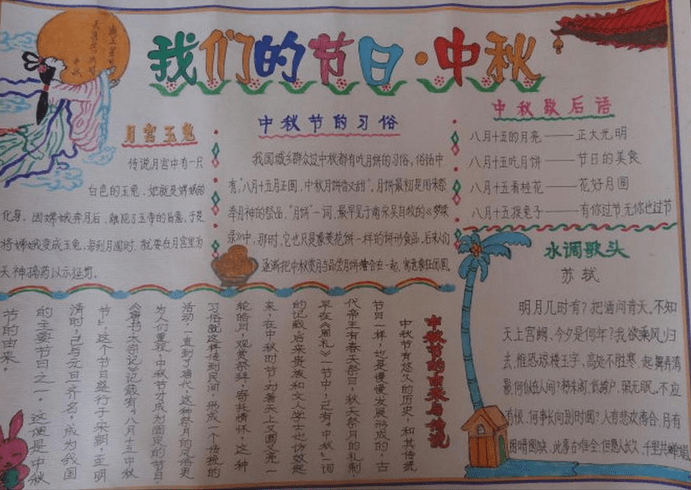 我们的节日·中秋
海上生明月
天涯共此时
月宫玉兔
传说月宫中有一只
白色的玉兔，她就是嫦娥的
化身。因嫦娥奔月后，触犯了玉帝的旨意，于是
将嫦娥变成玉兔，每到月圆时，就要在月宫里为
天神捣药以示惩罚。
中秋节的习俗
我国城乡群众过中秋都有吃月饼的习俗，俗话中
有："八月十五月正圆，中秋月饼香又甜"。月饼最初是用来祭
奉月神的祭品，"月饼"一词，最早见于南宋吴自牧的《梦粱
录》中，那时，它也只是象菱花饼一样的饼形食品，后来人们
逐渐把中秋赏月与品尝月饼结合在一起，寓意家庭团圆。
中秋歇后语
八月十五的月亮——正大光明
八月十五吃月饼——节日的美食
八月十五看桂花——花好月圆
八月十五捉兔子——有你过节无你也过节
水调歌头
苏轼
明月几时有？把酒问青天。不知
天上宫阙，今夕是何年？我欲乘风归
去，惟恐琼楼玉宇，高处不胜寒。起舞弄清
影，何似在人间？转朱阁，低绮户，照无眠。不应
有恨，何事长向别时圆？人有悲欢离合，月有
阴晴圆缺，此事古难全。但愿人长久，千里共婵娟。
中秋节的由来与传说
中秋节有悠久的历史，和其他传统
节日一样，也是慢慢发展形成的，古
代帝王有春天祭日，秋天祭月的礼制，
早在《周礼》一书中，已有"中秋"一词
的记载。后来贵族和文人学士也仿效起
来，在中秋时节，对着天上又圆又亮一
轮皓月，观赏祭拜，寄托情怀，这种
习俗就这样传到民间，形成一个传统的
活动，一直到了唐代，这种祭月的风俗更
为人们重视，中秋节才成为固定的节日，
《唐书·太宗记》记载有"八月十五中秋
节"，这个节日盛行于宋朝，至明
清时，已与元旦齐名，成为我国
的主要节日之一。这便是中秋
节的由来。